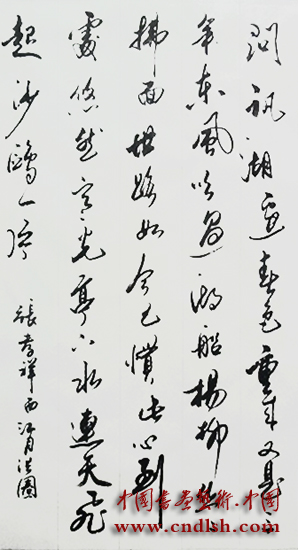 问讯湖邊春色重来又是三
年东風吹過湖船楊柳丝
拂面世路如今已慣此心到
處悠然寒光亭下水連天飛
起沙鷗一片
張孝祥西江月 法園
中国书画艺术.中国
www.cndlsh.com